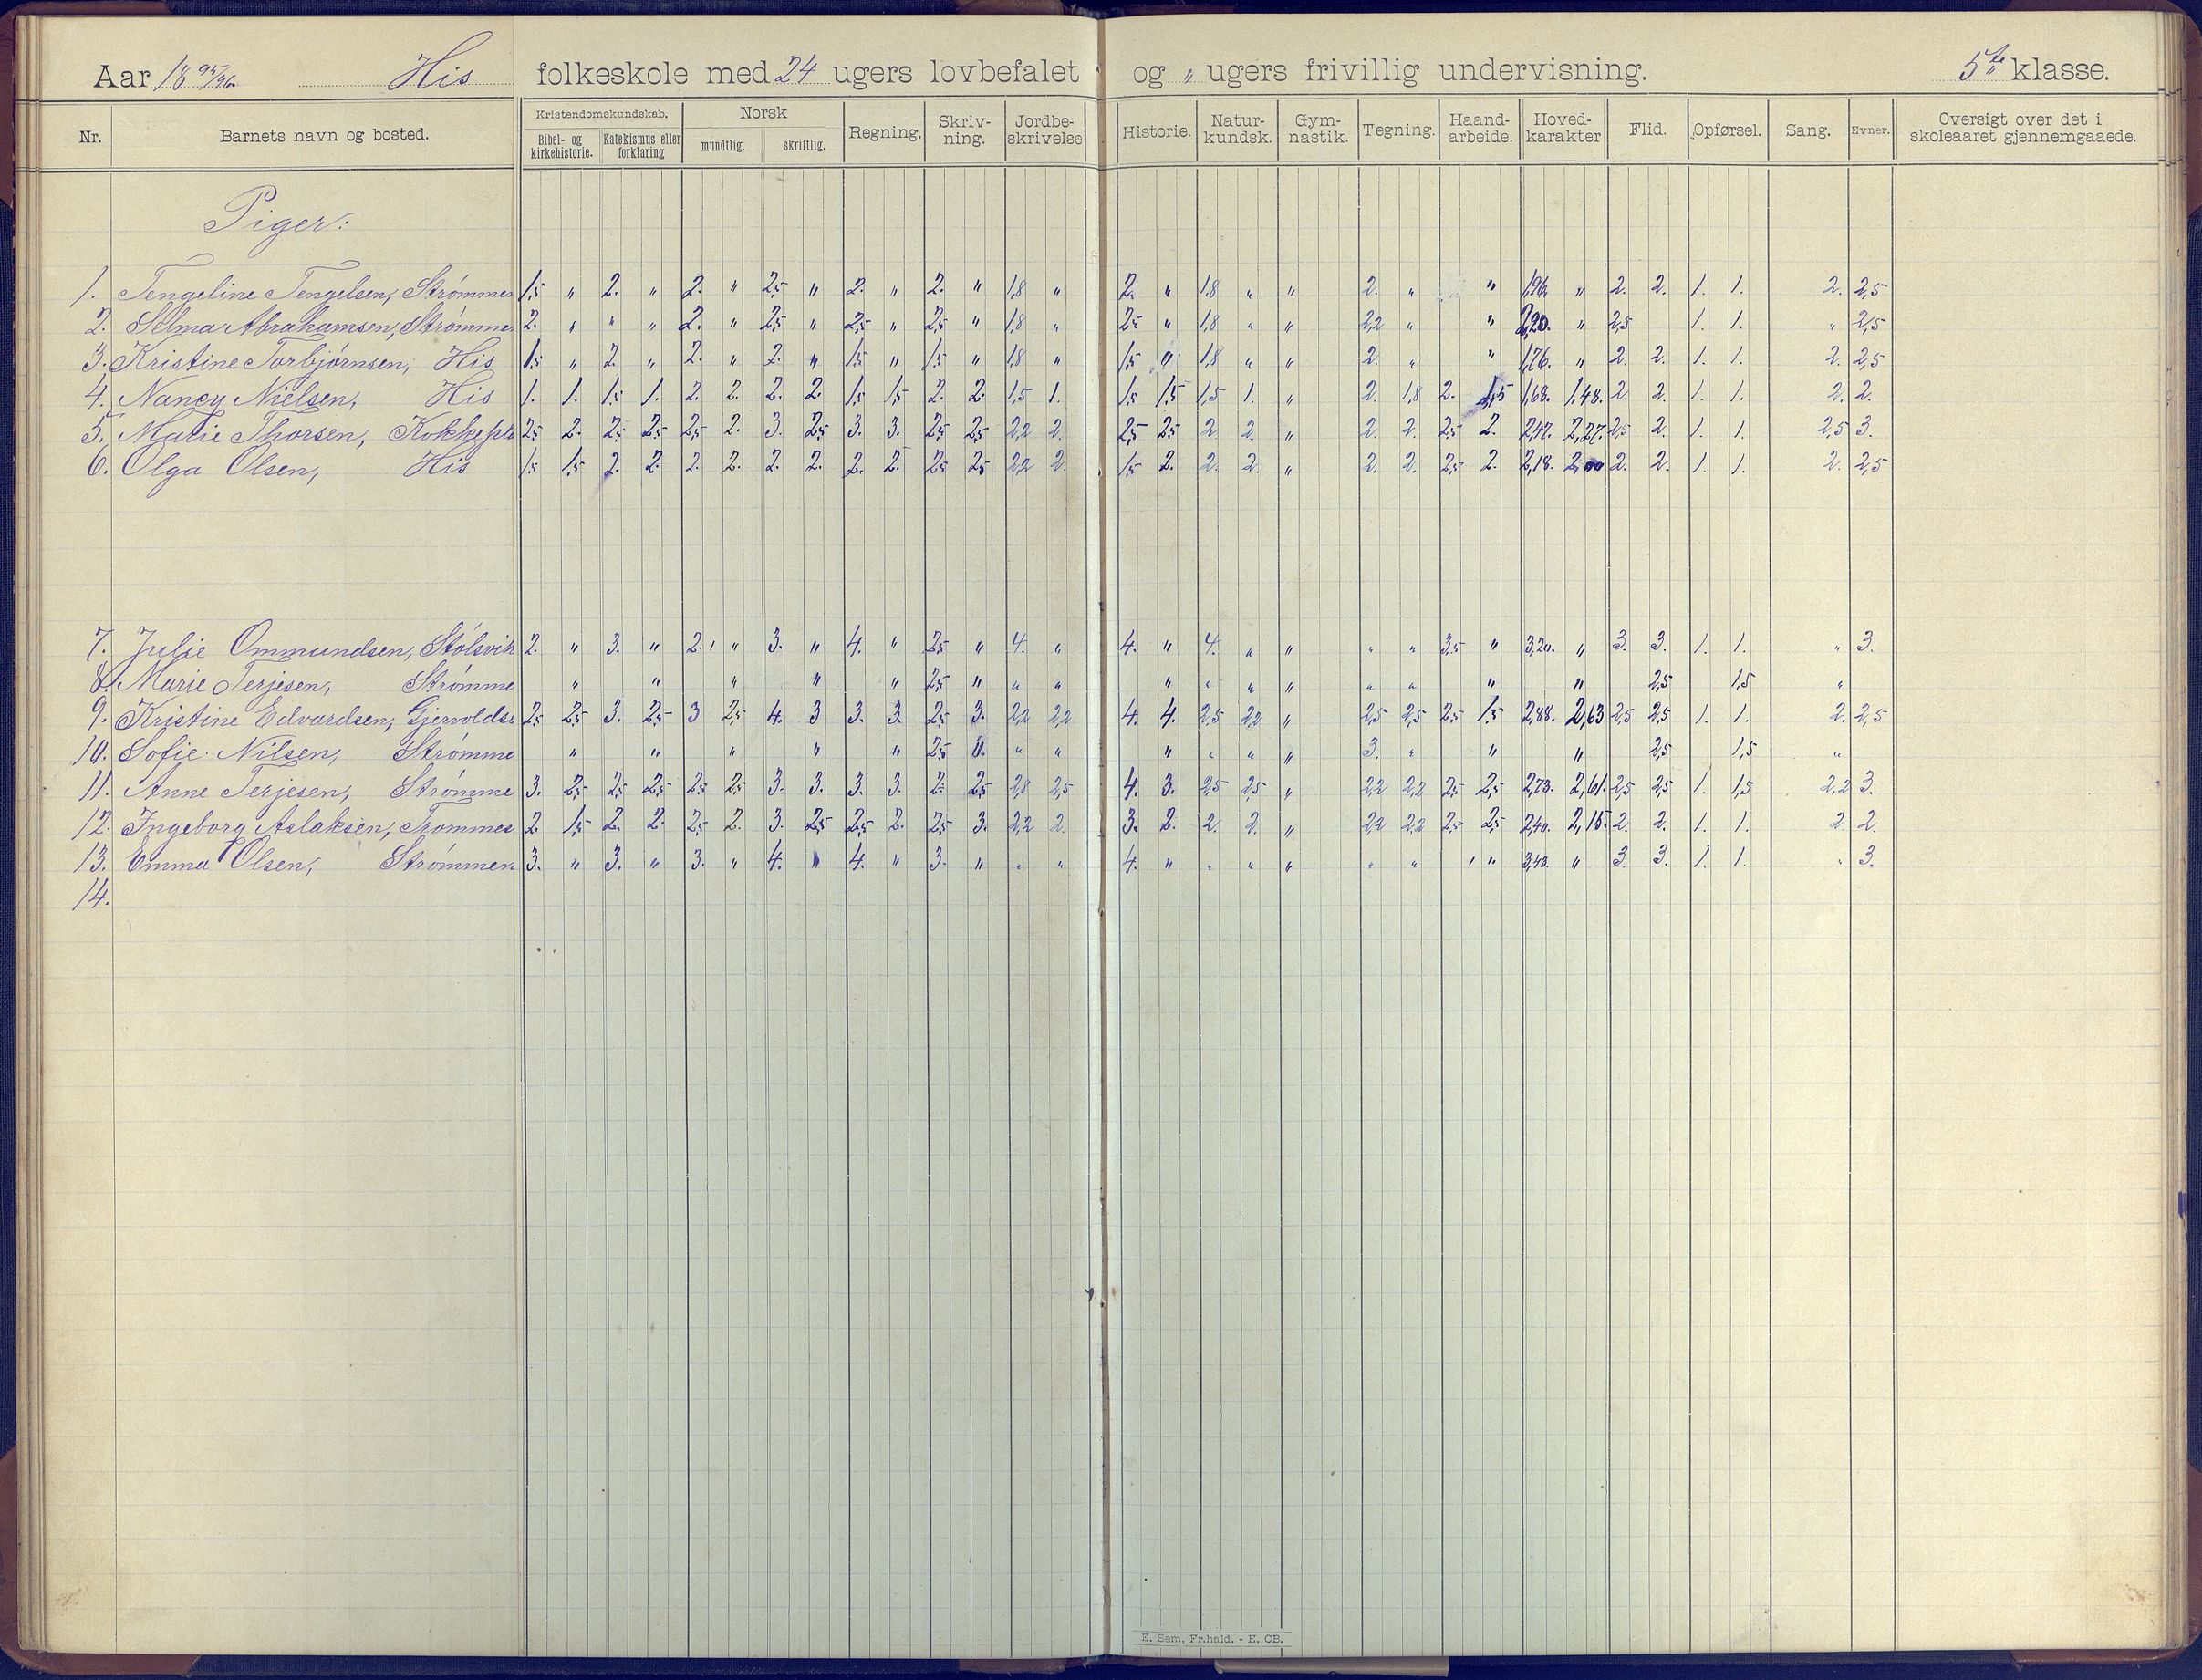 Aar 18 95/96. His folkeskole med 24 ugers lovbefalet og " ugers frivillig undervisning. 5te klasse.
Nr. Barnets navn og bosted. Kristendomskundskab. Bibel- og kirkehistorie. Katekismus eller forklaring Norsk mundtlig. skriftlig. Regning. Skriv-ning. Jordbe-skrivelse Historie. Natur-kundsk. Gym-nastik. Tegning. Haand-arbeide. Hoved-karakter Flid. Opførsel. Sang. Evner. Oversigt over det i skoleaaret gjennemgaaede.
Piger:
1. Tengeline Tengelsen, Strømmen 1,5 " 2. " 2. " 2,5 " 2. " 2. " 1,8 " 2. " 1,8 " " 2. " " 1,96. " 2. 2. 1. 1. 2. 2,5
2. Selma Abrahamsen, Strømme 2. " " " 2. " 2,5 " 2,5 " 2,5 " 1,8 " 2,5 " 1,8 " " 2,2 " " 2,20. " 2,5 1. 1. " 2,5
3. Kristine Torbjørnsen, His 1,5 " 2. " 2. " 2. " 1,5 " 1,5 " 1,8 " 1,5 " 1,8 " " 2. " " 1,76. " 2. 2. 1. 1. 2. 2,5
4. Nancy Nielsen, His 1. 1. 1,5 1. 2. 2. 2. 2. 1,5 1,5 2. 2. 1,5 1. 1,5 1,5 1,5 1. " 2. 1,8 2. 1,5 1,68. 1,48. 2. 2. 1. 1. 2. 2.
5. Marie Thorsen, Kokkepls 2,5 2. 2,5 2,5 2,5 2. 3. 2,5 3. 3. 2,5 2,5 2,2 2. 2,5 2,5 2. 2. " 2. 2. 2,5 2. 2,47. 2,27. 2,5 2. 1. 1. 2,5 3.
6. Olga Olsen, His 1,5 1,5 2. 2. 2. 2. 2. 2. 2. 2. 2,5 2,5 2,2 2. 1,5 2. 2. 2. " 2. 2. 2,5 2. 2,18. 2,00 2. 2. 1. 1. 2. 2,5
7. Julie Ommundsen, Stølsvik 2. " 3. " 2. " 3. " 4. " 2,5 " 4. " 4. " 4. " " " " 3,5 " 3,20. " 3. 3. 1. 1. " 3.
8. Marie Terjesen, Strømme " " " " " 2,5 " " " " " " " " " " " 2,5 1,5 "
9. Kristine Edvardsen, Gjervoldss 2,5 2,5 3. 2,5 3 2,5 4. 3 3. 3. 2,5 3. 2,2 2,2 4. 4. 2,5 2,2 " 2,5 2,5 2,5 1,5 2,88. 2,63 2,5 2,5 1. 1. 2. 2,5
10. Sofie Nilsen, Strømme " " " " " 2,5 " " " " " " " 3. " " " 2,5 1,5 "
11. Anne Terjesen, Strømme 3. 2,5 2,5 2,5 2,5 2,5 3. 3. 3. 3. 2. 2,5 2,8 2,5 4. 3. 2,5 2,5 " 2,2 2,2 2,5 2,5 2,73. 2,61. 2,5 2,5 1. 1,5 2,2 3.
12. Ingeborg Aslaksen, Trommes 2. 1,5 2. 2. 2,5 2. 3. 2,5 2,5 2. 2,5 3. 2,2 2. 3. 2. 2. 2. " 2,2 2,2 2,5 2,5 2,40. 2,15. 2. 2. 1. 1. 2. 2.
13. Emma Olsen, Strømmen 3. " 3. " 3. " 4. " 4. " 3. " " " 4. " " " " " " " " 3,43. " 3. 3. 1. 1. " 3.
14.
E. Sem, Fr.hald. - E. CB.